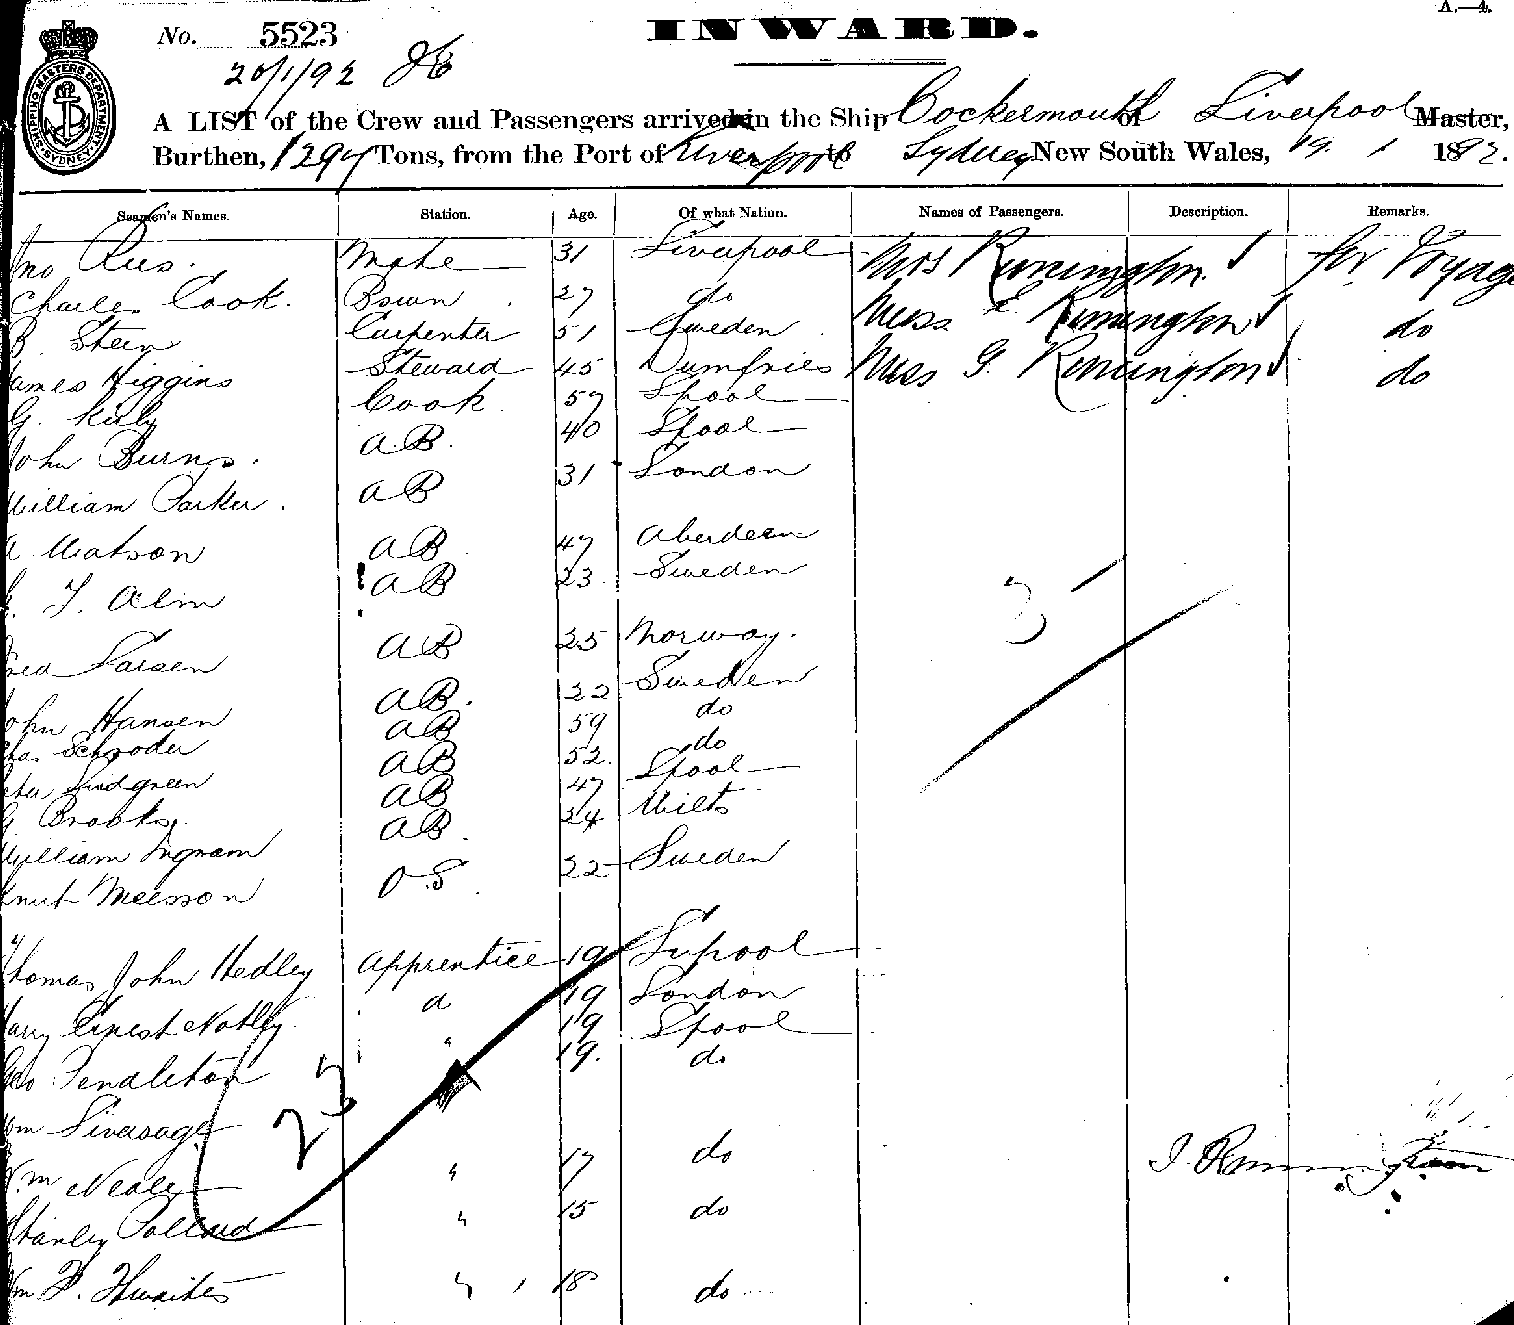 A.—4.
No. 5523
INWARD.
20/1/92
SHIPPING MASTERS DEPARTMENT SYDNEY
A LIST of the Crew and Passengers arrived in the Ship Cockermouth of Liverpool Master,
Burthen, 1294 Tons, from the Port of Liverpool to Sydney New South Wales, 19. 1 1892.
Seamen's Names. Station. Age. Of what Nation. Names of Passengers. Description. Remarks.
Jno Rees. Mate 31 Liverpool Mrs Remington for Voyage
Charles Cook. Bosun. 27 do Miss E Remington do
B. Steen Carpenter 51 Sweden Miss G. Remington do
James Higgins Steward 45 Dumfries
G. Cook 57 Lpool
John Burns. A.B. 40 Lpool
William Parker. AB 31 London
A Watson AB 47 Aberdeen
J. Alm AB 23 Sweden
Fred Larsen AB 25 Norway.
John Hansen AB. 22 Sweden
Chas. Schroder AB 59 do
Peter Lindgreen AB 52. do
G Brooks AB 47 Lpool
William Ingram AB 24 Wilts
Knut O.S. 22 Sweden
Thomas John Hedley Apprentice 19 Lvpool
Harry Ernest Notley d 19 London
Geo Pendleton " 19 Lpool
Tom Liversage 19. do
Wm Neale " 17 do
Stanley Pollard " 15 do
Wm F. Thwaites " 18 do
3
23
J. Remington